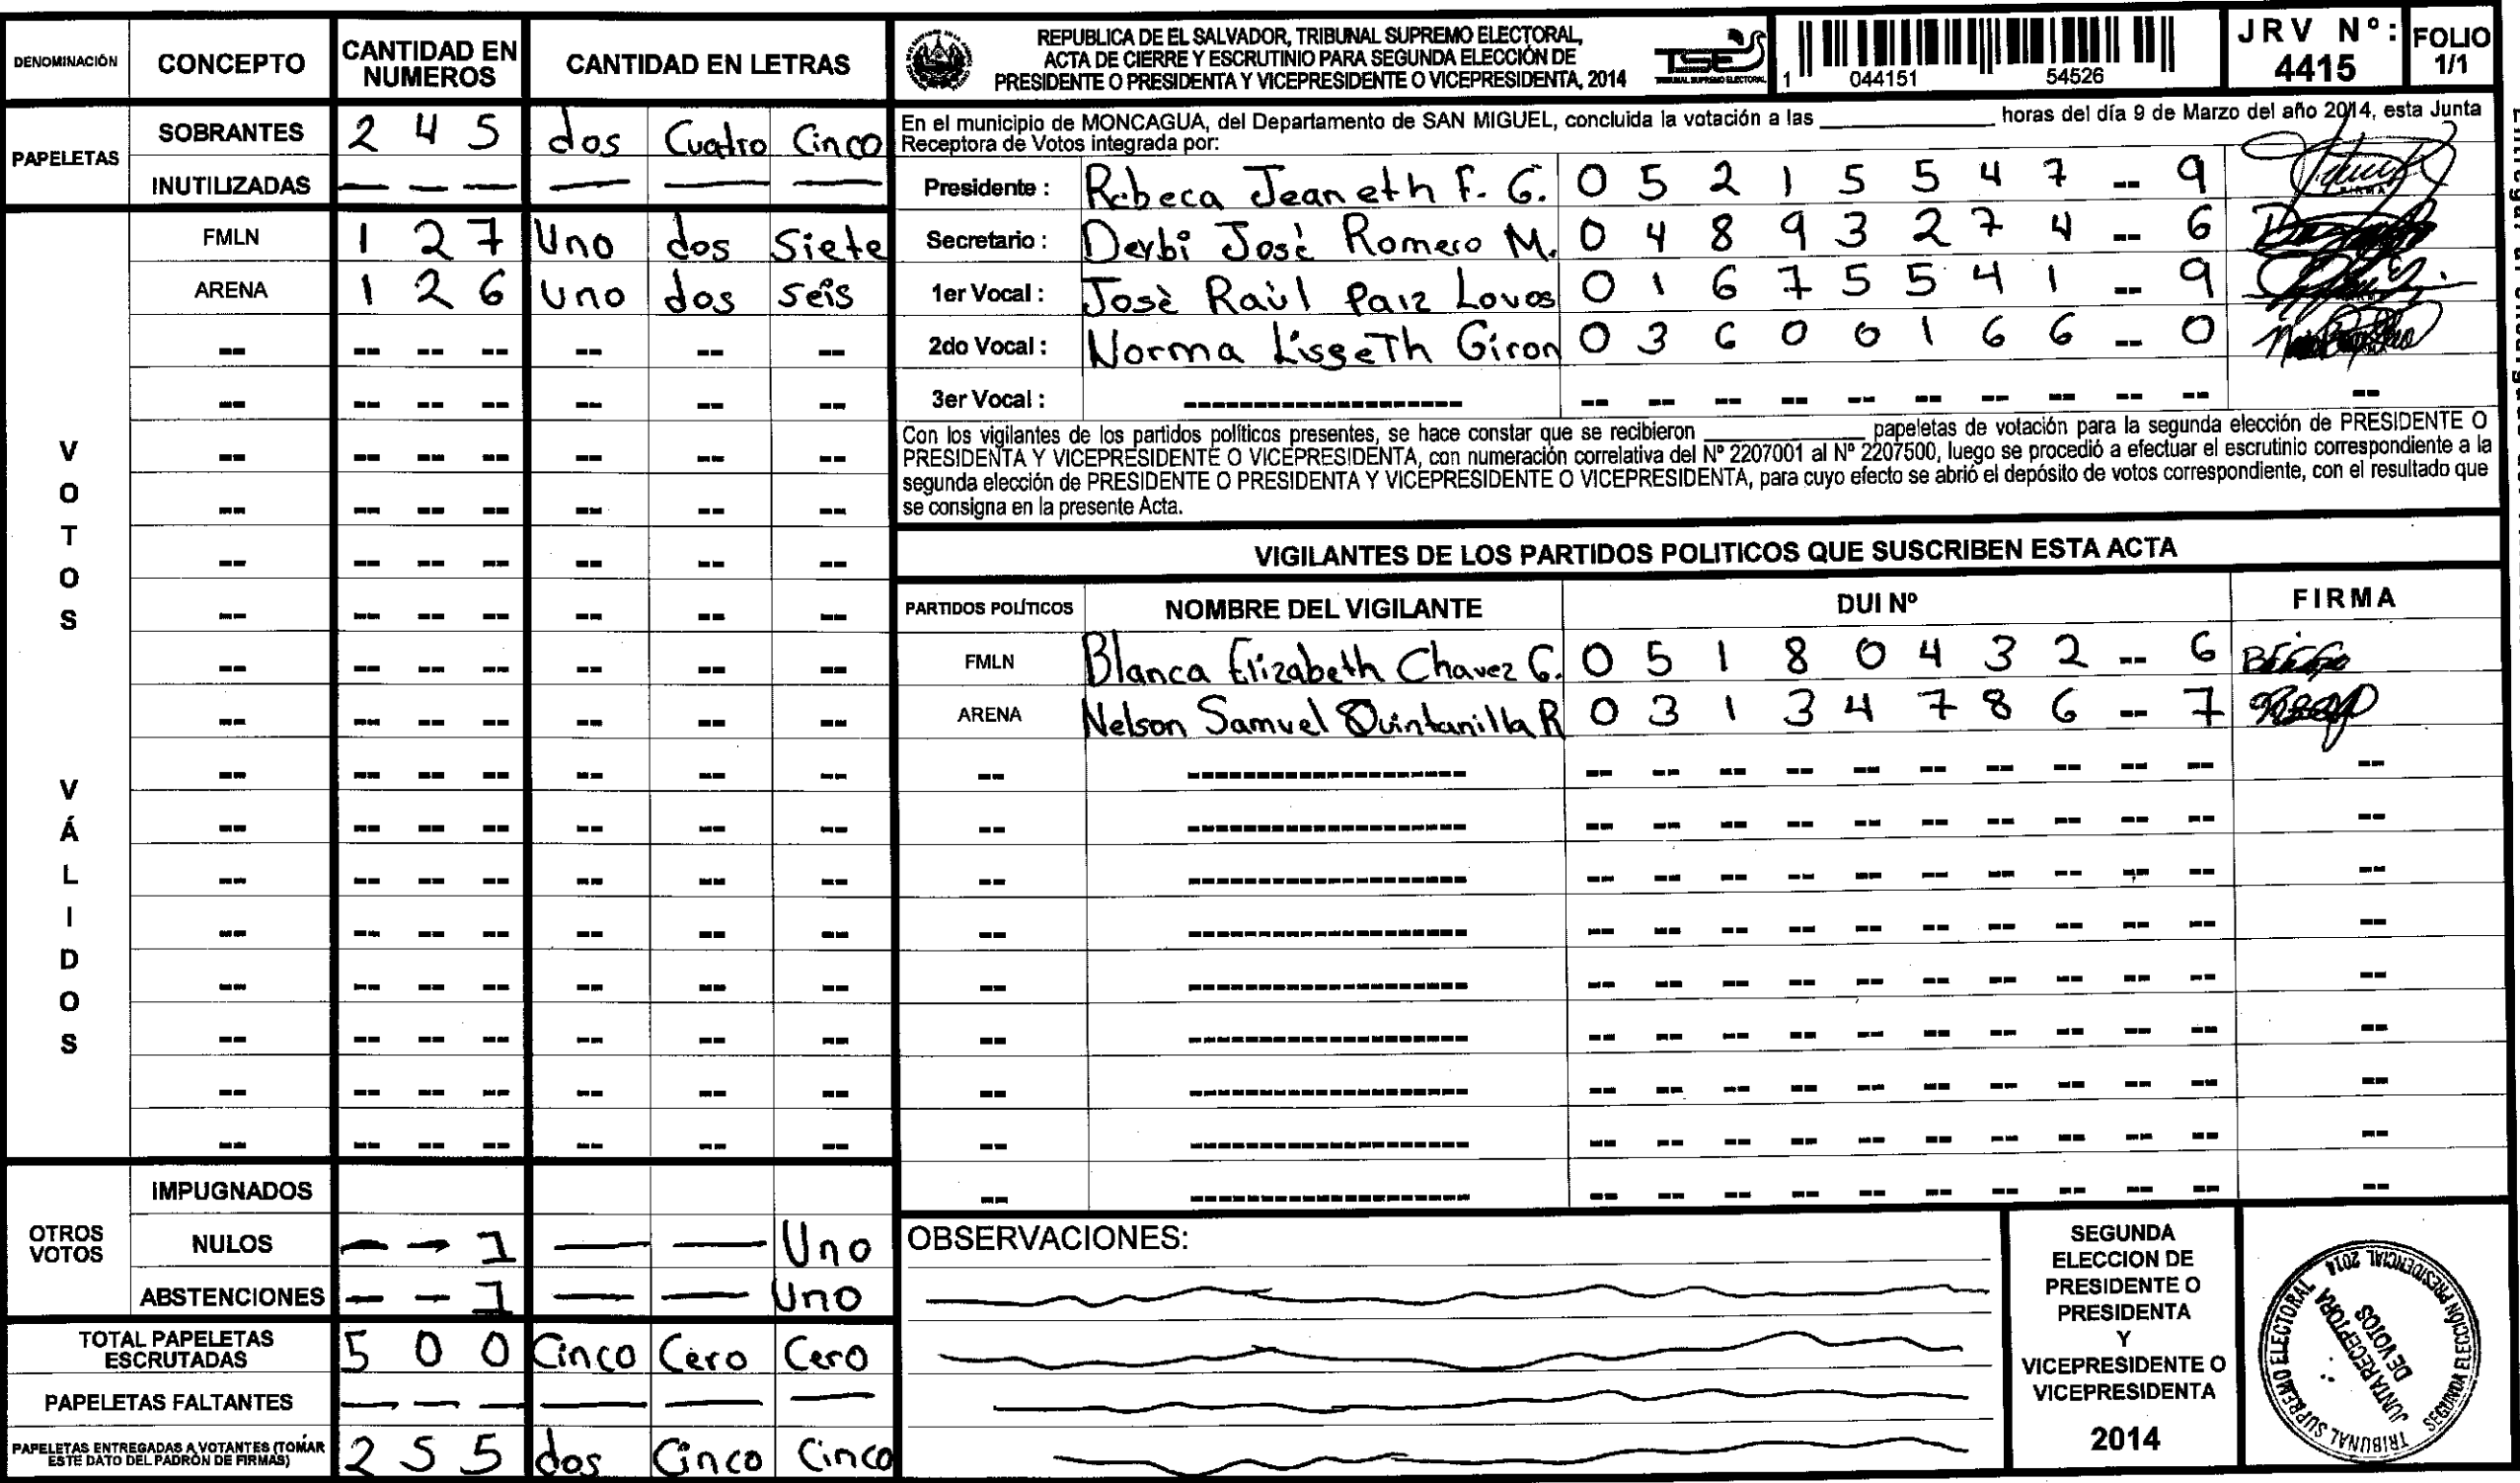 DENOMINACIÓN CONCEPTO CANTIDAD EN NUMEROS CANTIDAD EN LETRAS
PAPELETAS
SOBRANTES 2 4 5 dos Cuatro Cinco
INUTILIZADAS — — — — — —
VOTOS VÁLIDOS
FMLN 1 2 7 Uno dos Siete
ARENA 1 2 6 Uno dos seis
OTROS VOTOS
IMPUGNADOS
NULOS — — 1 — — Uno
ABSTENCIONES — — 1 — — Uno
TOTAL PAPELETAS ESCRUTADAS 5 0 0 Cinco Cero Cero
PAPELETAS FALTANTES — — — — — —
PAPELETAS ENTREGADAS A VOTANTES (TOMAR ESTE DATO DEL PADRÓN DE FIRMAS) 2 5 5 dos Cinco Cinco
REPUBLICA DE EL SALVADOR, TRIBUNAL SUPREMO ELECTORAL,
ACTA DE CIERRE Y ESCRUTINIO PARA SEGUNDA ELECCIÓN DE
PRESIDENTE O PRESIDENTA Y VICEPRESIDENTE O VICEPRESIDENTA, 2014
TSE
TRIBUNAL SUPREMO ELECTORAL
1 044151 54526
JRV Nº: 4415
FOLIO 1/1
En el municipio de MONCAGUA, del Departamento de SAN MIGUEL, concluida la votación a las ____________ horas del día 9 de Marzo del año 2014, esta Junta
Receptora de Votos integrada por:
Presidente : Rebeca Jeaneth F. G. 0 5 2 1 5 5 4 7 -- 9
Secretario : Derbi José Romero M. 0 4 8 9 3 2 7 4 -- 6
1er Vocal : José Raúl Paiz Lovos 0 1 6 7 5 5 4 1 -- 9
2do Vocal : Norma Lisseth Giron 0 3 6 0 0 1 6 6 -- 0
3er Vocal :
Con los vigilantes de los partidos políticos presentes, se hace constar que se recibieron ____________ papeletas de votación para la segunda elección de PRESIDENTE O
PRESIDENTA Y VICEPRESIDENTE O VICEPRESIDENTA, con numeración correlativa del Nº 2207001 al Nº 2207500, luego se procedió a efectuar el escrutinio correspondiente a la
segunda elección de PRESIDENTE O PRESIDENTA Y VICEPRESIDENTE O VICEPRESIDENTA, para cuyo efecto se abrió el depósito de votos correspondiente, con el resultado que
se consigna en la presente Acta.
VIGILANTES DE LOS PARTIDOS POLITICOS QUE SUSCRIBEN ESTA ACTA
PARTIDOS POLÍTICOS NOMBRE DEL VIGILANTE DUI Nº FIRMA
FMLN Blanca Elizabeth Chavez G. 0 5 1 8 0 4 3 2 -- 6
ARENA Nelson Samuel Quintanilla R 0 3 1 3 4 7 8 6 -- 7
OBSERVACIONES:
SEGUNDA
ELECCION DE
PRESIDENTE O
PRESIDENTA
Y
VICEPRESIDENTE O
VICEPRESIDENTA
2014
TRIBUNAL SUPREMO ELECTORAL
SEGUNDA ELECCIÓN PRESIDENCIAL 2014
JUNTA RECEPTORA
DE VOTOS